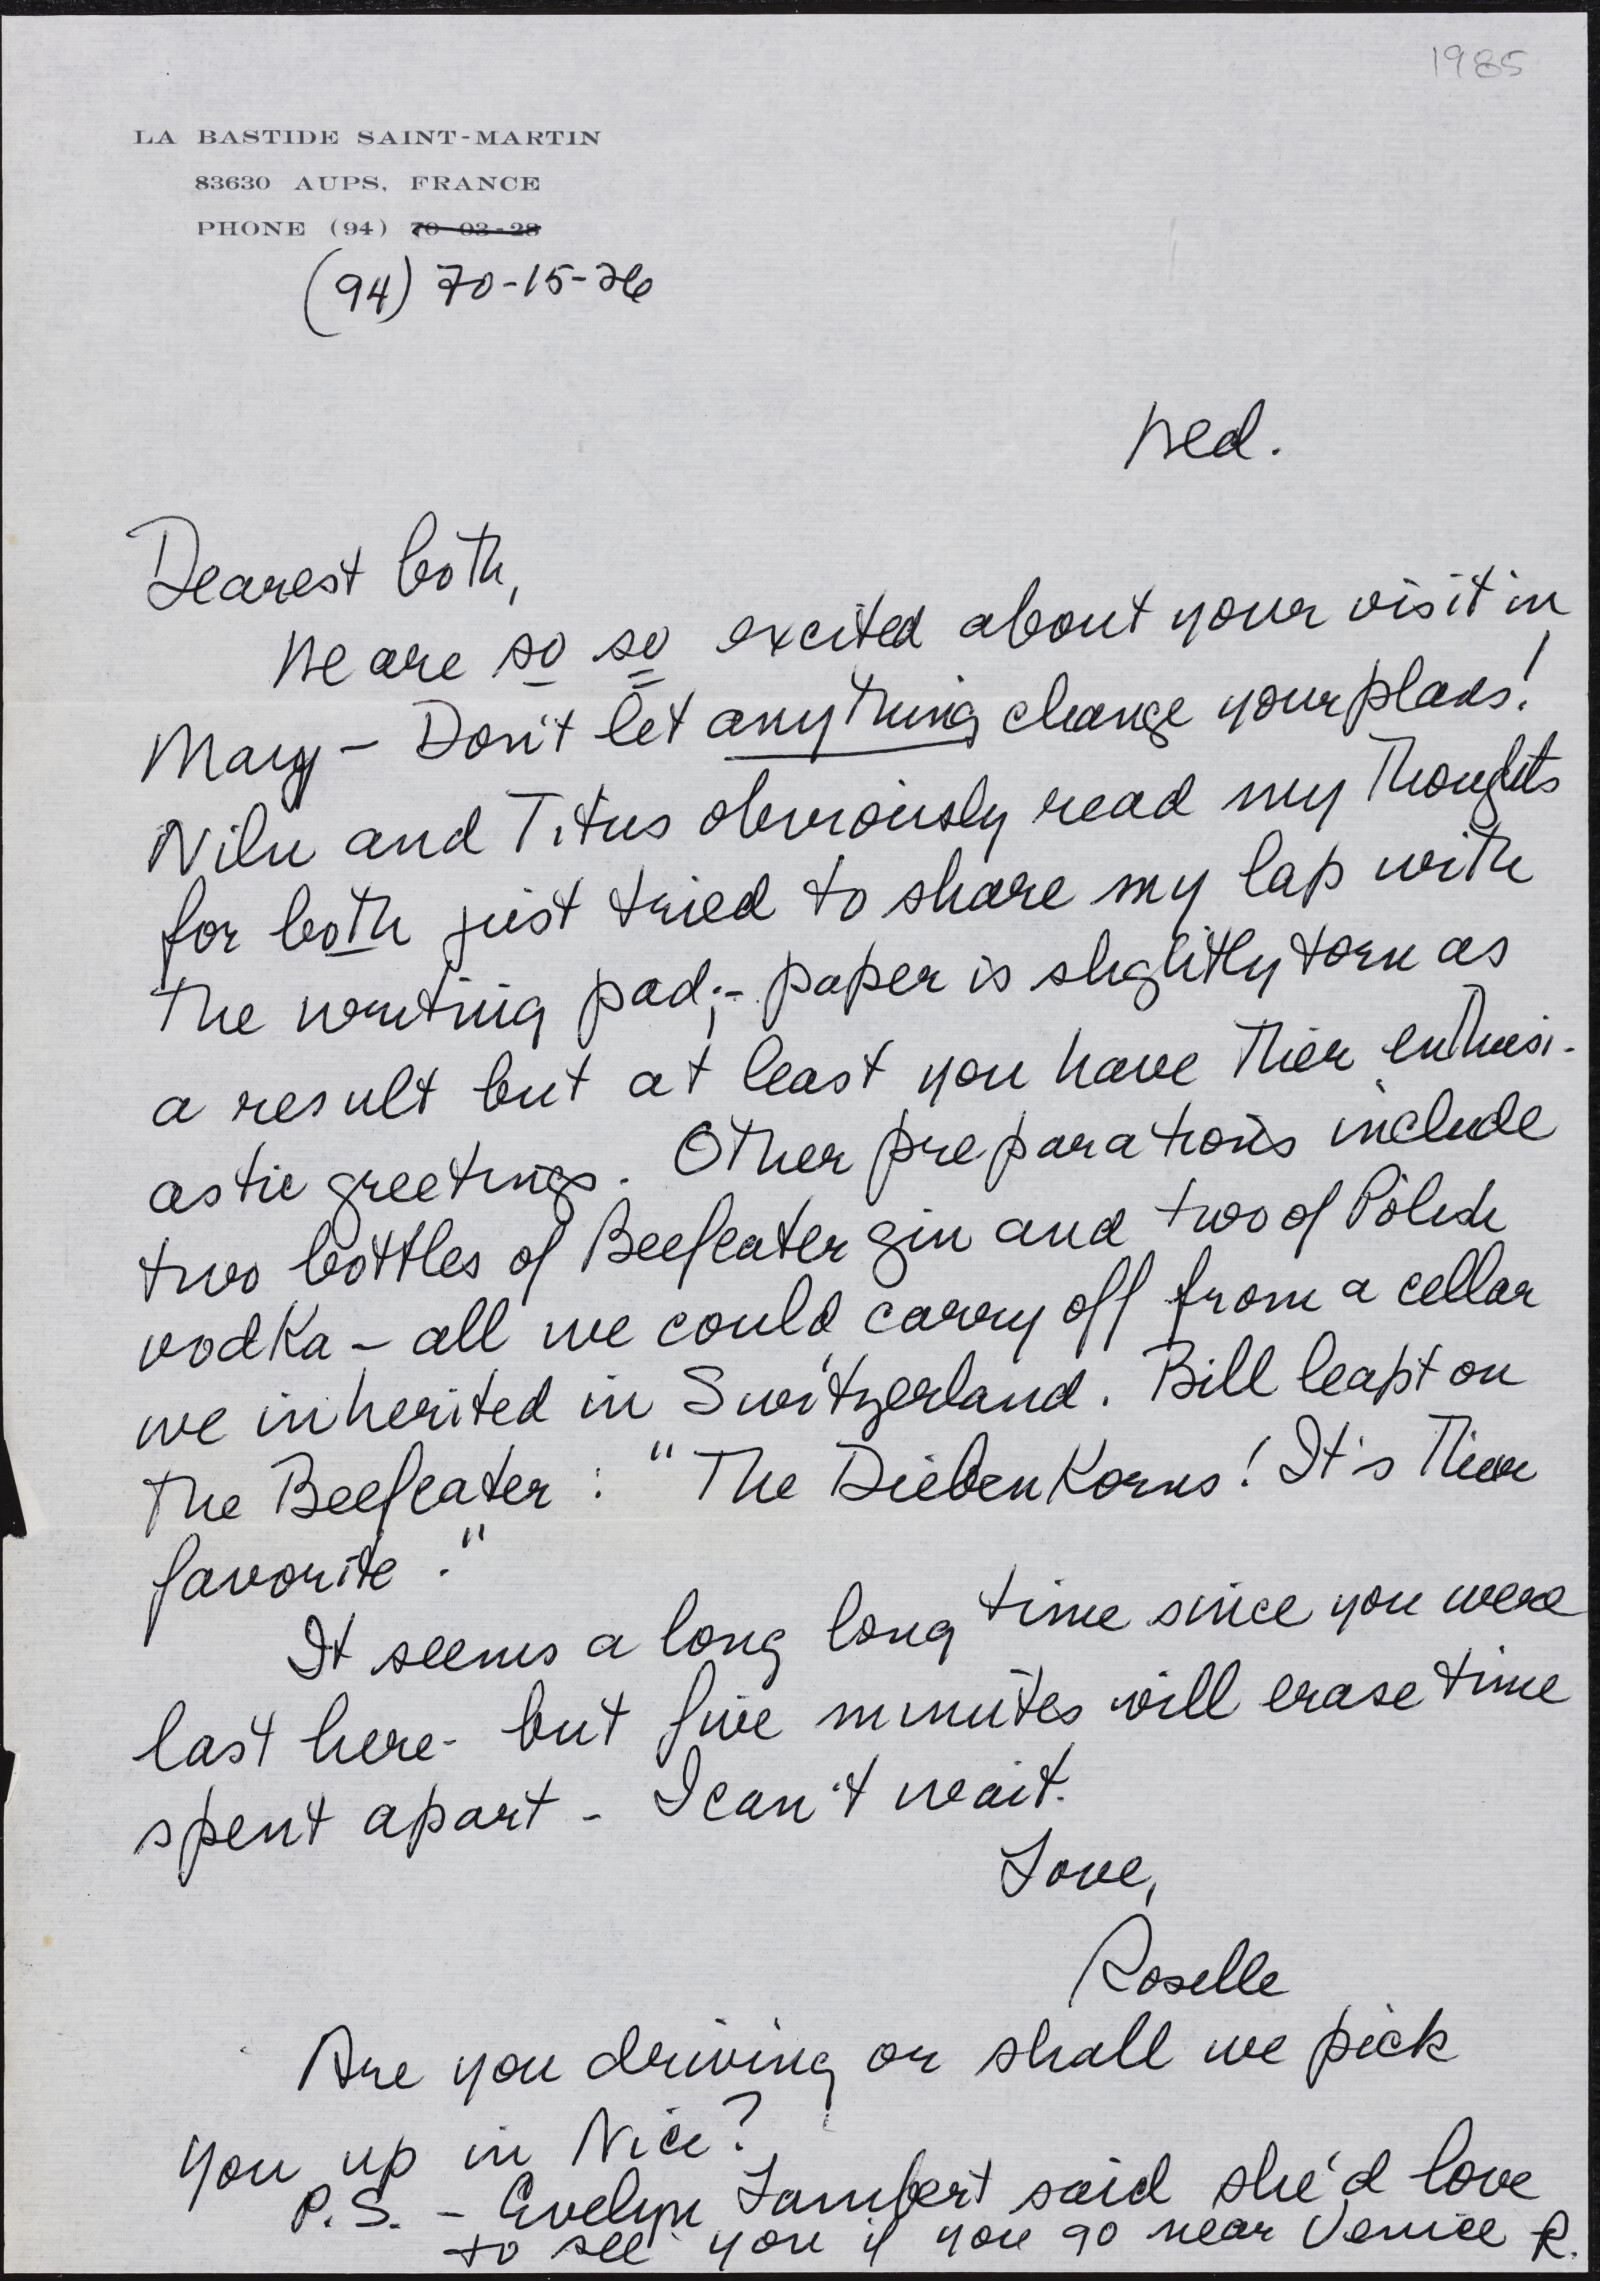 1985
LA BASTIDE SAINT-MARTIN
83630 AUPS, FRANCE
PHONE (94) 70-03-28
(94) 70-15-26
Wed.
Dearest both,
We are so so excited about your visit in
May – Don't let anything change your plans!
Nilu and Titus obviously read my thoughts
for both just tried to share my lap with
the writing pad;– paper is slightly torn as
a result but at least you have thier enthusi-
astic greetings. Other preparations include
two bottles of Beefeater gin and two of Polish
vodka – all we could carry off from a cellar
we inherited in Switzerland. Bill leapt on
the Beefeater : "The DiebenKorns! It's thier
favorite."
It seems a long long time since you were
last here – but five minutes will erase time
spent apart – I can't wait.
Love,
Roselle
Are you driving or shall we pick
you up in Nice?
P.S. – Evelyn Lambert said she'd love
to see you if you go near Venice R.